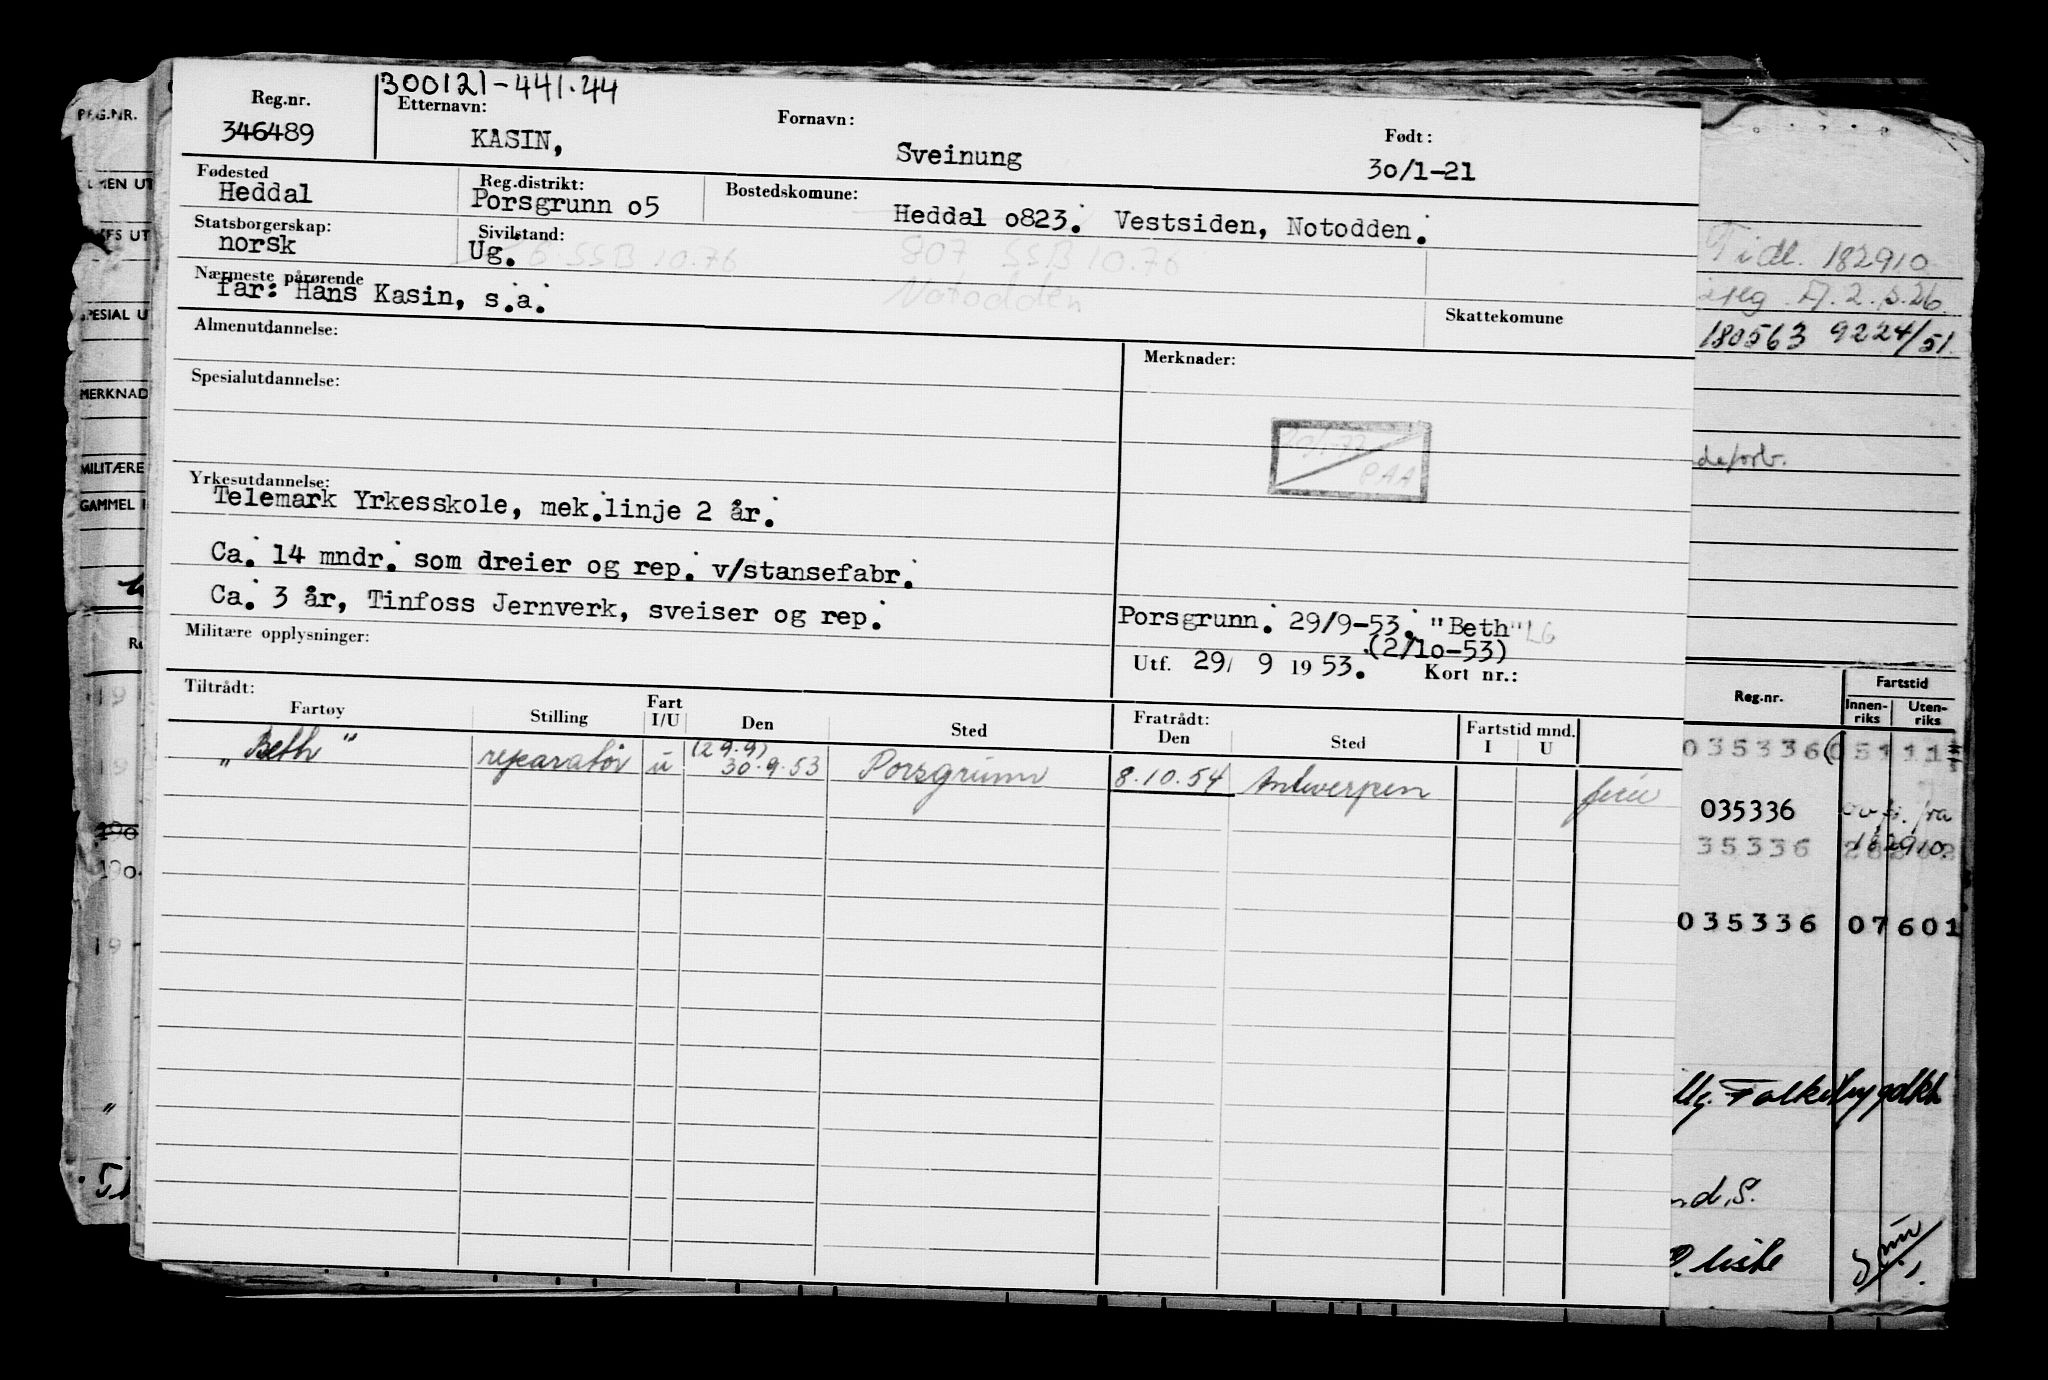 300121-441.44
Reg.nr. Etternavn: Fornavn: Født:
346489 KASIN, Sveinung 30/1-21
Fødested Reg.distrikt: Bostedskomune:
Heddal Porsgrunn o5 Heddal o823. Vestsiden, Notodden.
Statsborgerskap: Sivilstand:
norsk Ug. 6 SSB 10.76 807 SSB 10.76
Nærmeste pårørende
far: Hans Kasin, s.a. Notodden
Skattekomune
Almenutdannelse: Merknader:
Spesialutdannelse:
PAA
Yrkesutdannelse:
Telemark Yrkesskole, mek.linje 2 år.
Ca. 14 mndr. som dreier og rep. v/stansefabr.
Ca. 3 år, Tinfoss Jernverk, sveiser og rep.
Porsgrunn. 29/9-53. "Beth" LG
(2/1o-53)
Militære opplysninger: Utf. 29/ 9 1953. Kort nr.:
Tiltrådt: Fratrådt:
Fartøy Stilling Fart I/U Den Sted Den Sted Fartstid mnd. I U
"Beth" reparatør u (29.9) 30.9.53 Porsgrunn 8.10.54 Antwerpen
REG.NR.
MEN UT
FS UT
SPESIAL U
MERKNAD
MILITÆRE
GAMMEL
Tidl. 182910
A. 2. s. 26.
180563 9224/51.
Reg.nr. Fartstid
Innen-riks Uten-riks
035336 05111
035336 fra
35336 182910
035336 07601
Folkebygdkh
nd. S.
liste